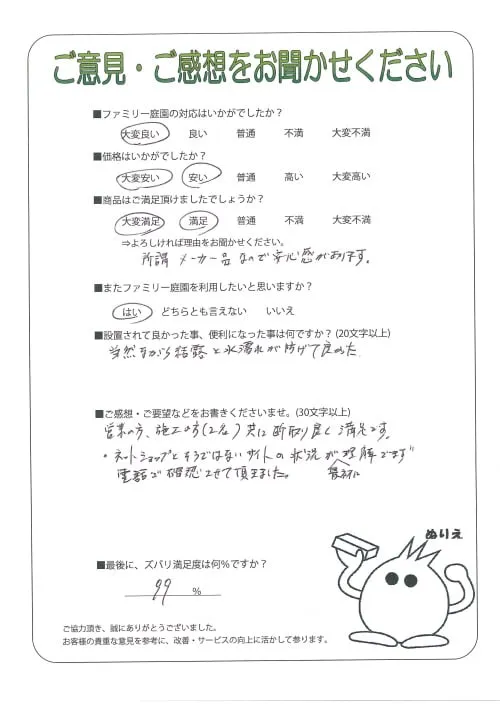 ご意見・ご感想をお聞かせください
■ファミリー庭園の対応はいかがでしたか？
大変良い 良い 普通 不満 大変不満
■価格はいかがでしたか？
大変安い 安い 普通 高い 大変高い
■商品はご満足頂けましたでしょうか？
大変満足 満足 普通 不満 大変不満
⇒よろしければ理由をお聞かせください。
所謂メーカー品なので安心感があります。
■またファミリー庭園を利用したいと思いますか？
はい どちらとも言えない いいえ
■設置されて良かった事、便利になった事は何ですか？(20文字以上)
当然ながら結露と水濡れが防げて良かった
■ご感想・ご要望などをお書きくださいませ。(30文字以上)
営業の方、施工の方(2名)共に段取り良く満足です。
・ネットショップとそうではないサイトの状況が理解できず
電話で確認させて頂きました。
ぬりえ
■最後に、ズバリ満足度は何％ですか？
99 %
ご協力頂き、誠にありがとうございました。
お客様の貴重な意見を参考に、改善・サービスの向上に活かして参ります。